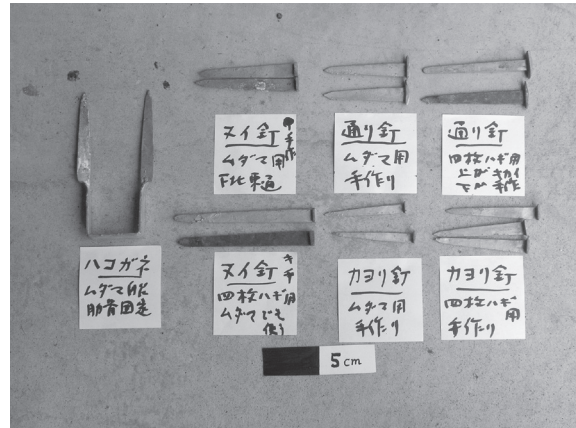 ヌイ釘
手作
ムダマ用
下北東通
通り釘
ムダマ用
手作り
通り釘
四枚ハギ用
上がキカイ
下が手作
ハコガネ
ムダマ
肋骨固定
ヌイ釘
四枚ハギ用
ムダマでも
使う
カヨリ釘
ムダマ用
手作り
カヨリ釘
四枚ハギ用
手作り
5cm